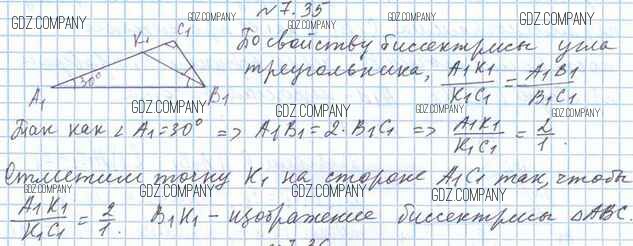 №7.35
GDZ.COMPANY GDZ.COMPANY GDZ.COMPANY GDZ.COMPANY
K₁ C₁
По свойству биссектрисы угла
треугольника, A₁K₁/K₁C₁ = A₁B₁/B₁C₁
30°
A₁ B₁
GDZ.COMPANY GDZ.COMPANY GDZ.COMPANY
GDZ.COMPANY
Так как ∠A₁=30° => A₁B₁=2·B₁C₁ => A₁K₁/K₁C₁ = 2/1.
GDZ.COMPANY GDZ.COMPANY GDZ.COMPANY
Отметим точку K₁ на стороне A₁C₁ так, чтобы
GDZ.COMPANY GDZ.COMPANY GDZ.COMPANY GDZ.COMPANY
A₁K₁/K₁C₁ = 2/1. B₁K₁ - изображение биссектрисы ΔABC.